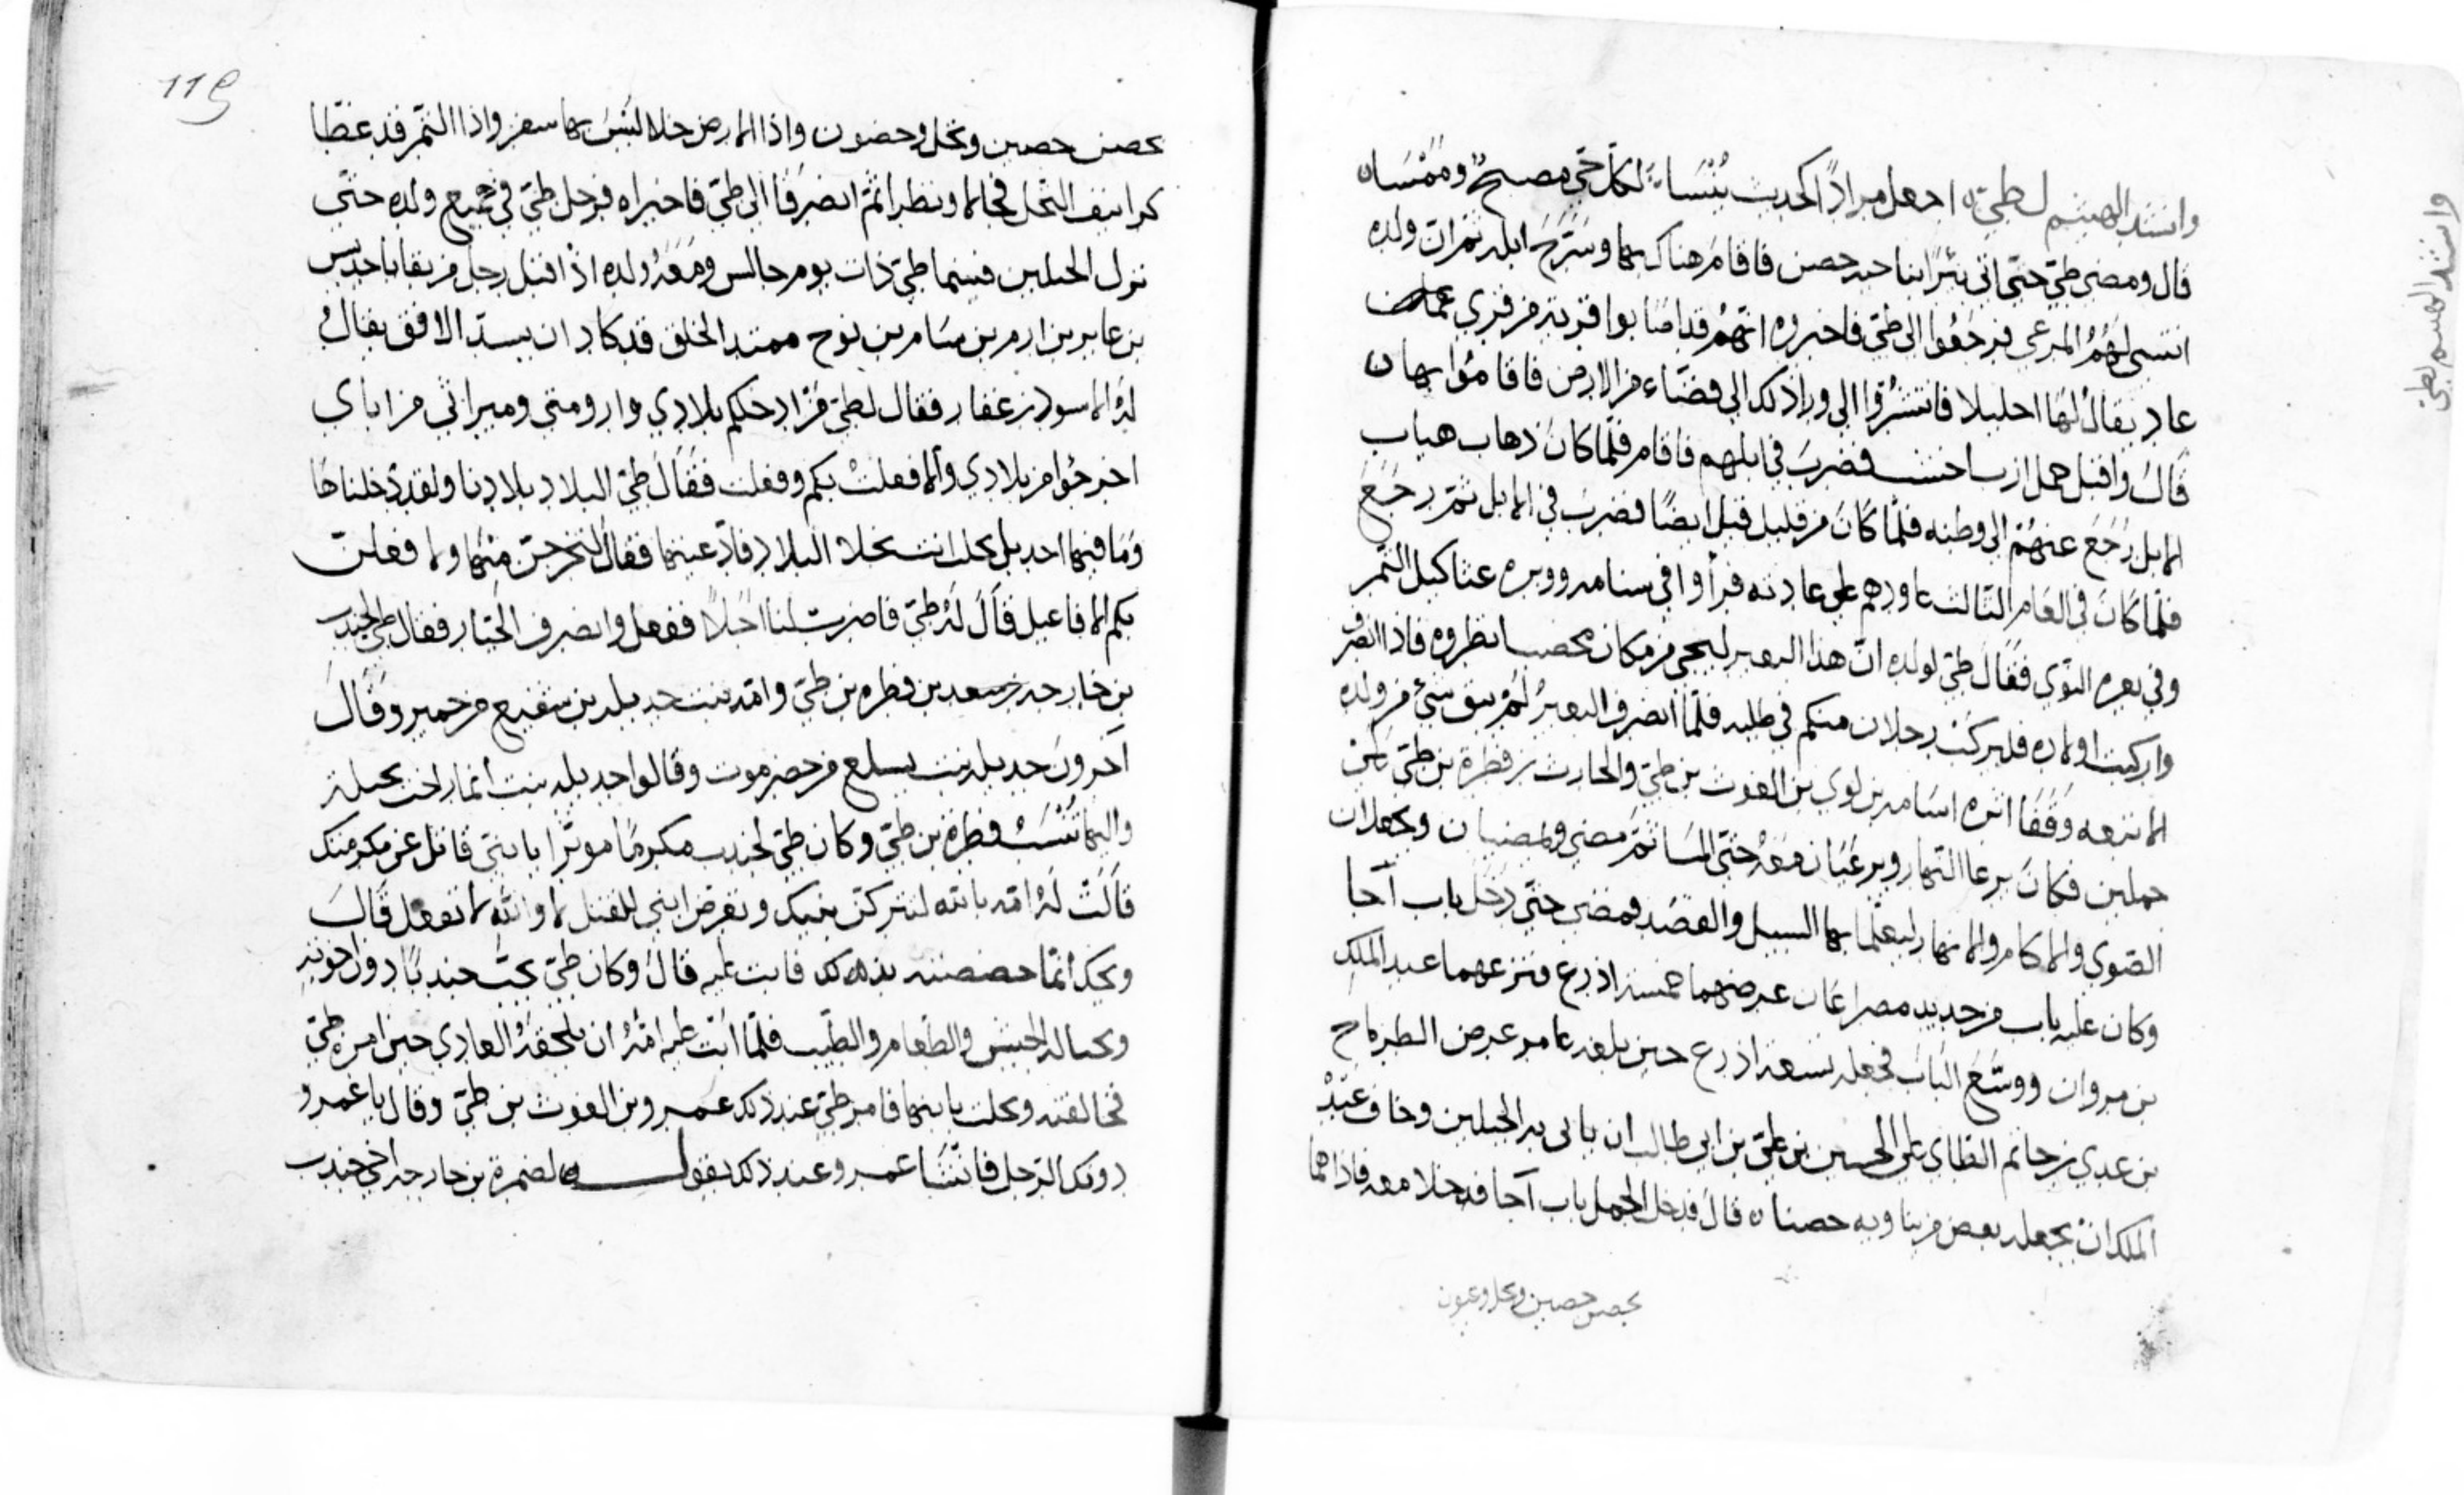 وانشد الهيثم لطيّ ه اجعل مرادًا كحديث يُنْسَا ه لكلّ حَيٍّ مصبحٌ ومُمْسَا ه
قال ومضى طيّ حتى اتى بئرًا بناحيه حصن فاقام هناك بها وسَرَّحَ ابله ثم ان ولده
انتسى لهُمُ المرعى فرجَعُوا الى طيّ فاخبروه انّهُمْ قد اصَابوا قرية من قرى
عاد يقالُ لها احليلا فانتشرُوا الى وراذلك الى فضَاء من الارض فاقامُوا بها ه
قالَ واقبل جمل ازب فضربَ في ابلهم فاقام فلمّا كانَ ذهاب هباب
الابل رَجَعَ عنهُمْ الى وطنه فلمّا كانَ من قابل قبل ايضًا فضربَ في الابل ثمّ رجَعَ
فلمّا كانَ في العَام الثالث عاودهم على عادته فرأوا في سنامه ووبره عثاكيل التّمر
وفي بعره النّوى فقالَ طيّ لولده انّ هذا البعير ليجي من مكان مخصب انظروه فاذا انصرف
واركبت اولاده فليركبْ رجلان منكم في طلبه فلمّا انصرف البعيرُ لمْ يبق شيْ من ولده
الا تبعه وَقَفَا اثره اسَامه بن لوي بن الغوث بن طيّ والحارث بن فطرة بن طيّ
جملين فكانَ يرعا النّهار ويرعَيَان معَهُ حتى المسَا ثمّ مضى ويمضيان ويجعلان
الصّوى والاكام والانهار ليعلما بها السبيل والقصَد ومضى حتى دَخَل باب آجا
وكان عليه باب من حديد مصراعَان عرضهما خمسة اذرع فنزعهما عبد الملك
بن مروان ووسَّعَ البَابَ فجعله تسعة اذرع حين بلغه عرض الطرماح
بن عدي بن حاتم الطاي على الحسين بن علىّ بن ابى طالب ان ياتى به الجبلين وخاف عَبْدُ
الملك انْ يجعله بعض من يناويه حصنا ه قال فدخل الجمل باب آجا فدخلا معه فاذا هما
بحصن حصين ونخل وعيون
وانشد الهيثم لطيّ
119
بحصن حصين ونخل وحضون واذا الارض خلا ليْسَ بها سفر واذا التّمر قد غطّا
كرانيف النّخل فجالا ونظرا ثمّ انصَرفَا الى طيّ فاخبراه فرحل طيّ في جميع ولده حتّى
نزل الجبلين فبينما طيّ ذات يوم جالس ومَعَهُ ولده اذْ اقبل رجل من بقايا جديس
بن عابر بن ارم بن سَام بن نوح ممتد الخلق قد كاد ان يسدّ الافق يقالُ
لهُ الاسود بن غفار فقال لطيّ مَنْ ادخلكم بلادي وارومتي وميراثي من اباي
اخرجُوا من بلادي والا فعلتْ بكم وفعلت فقَالَ طيّ البلاد بلادنا ولقد دَخلناها
وَمَا فيها احد بل انت البلاد فادّعيتها فقالَ لتخرجنّ منْهَا ولا فعلت
بكم الافاعيل قَالَ لهُ طيّ فاضرب لنا اجَلاً ففعل وانصرف الجبّار فقال طيّ لجندب
بن خارجه بن سعد بن فطره بن طيّ وامّه بنت جديله بن سُبَيع من حمير وقَالَ
آخرونَ جديله بنت يسلع من حضرموت وقالوا جديله بنت أنمار اخت بجيلة
واليها تُنْسَبُ فطرة بن طيّ وكان طيّ لجندب مكرمًا موثرًا يا بنيّ قاتل عن مكرمتك
قَالَتْ لهُ امّه بالله لتتركنّ بنيك وتعرّض ابني للقتل لا والله لا تفعل قَالَ
ويحك انّما خصصته بذلك فابت عليه قالَ وكان طيّ يحبّ جندبًا دون اخوته
الحيس والطعام والطّيب فلمّا ابت عليه امّهُ ان يلحقَهُ العادي حين امره طيّ
فخالفته وبخلت بابنها قام طيّ عند ذلك عمرو بن الغوث بن طيّ وقال يا عَمرو
دونك الرّجل فانْشا عمرو عند ذلك يقول لضمرة بن خارجه اخي جندب